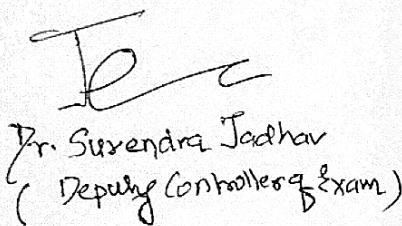 Dr. Surendra Jadhav
(Deputy Controller of Exam)